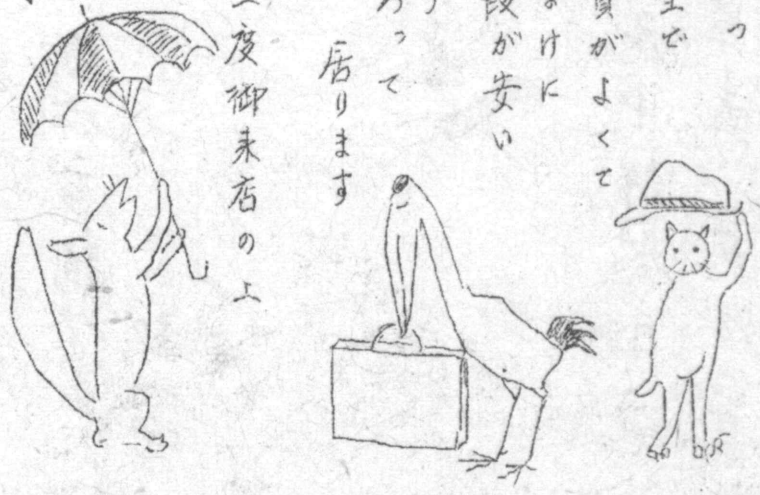 つ
で
質がよくて
まけに
段が安い
って
居ります
一度御来店の上